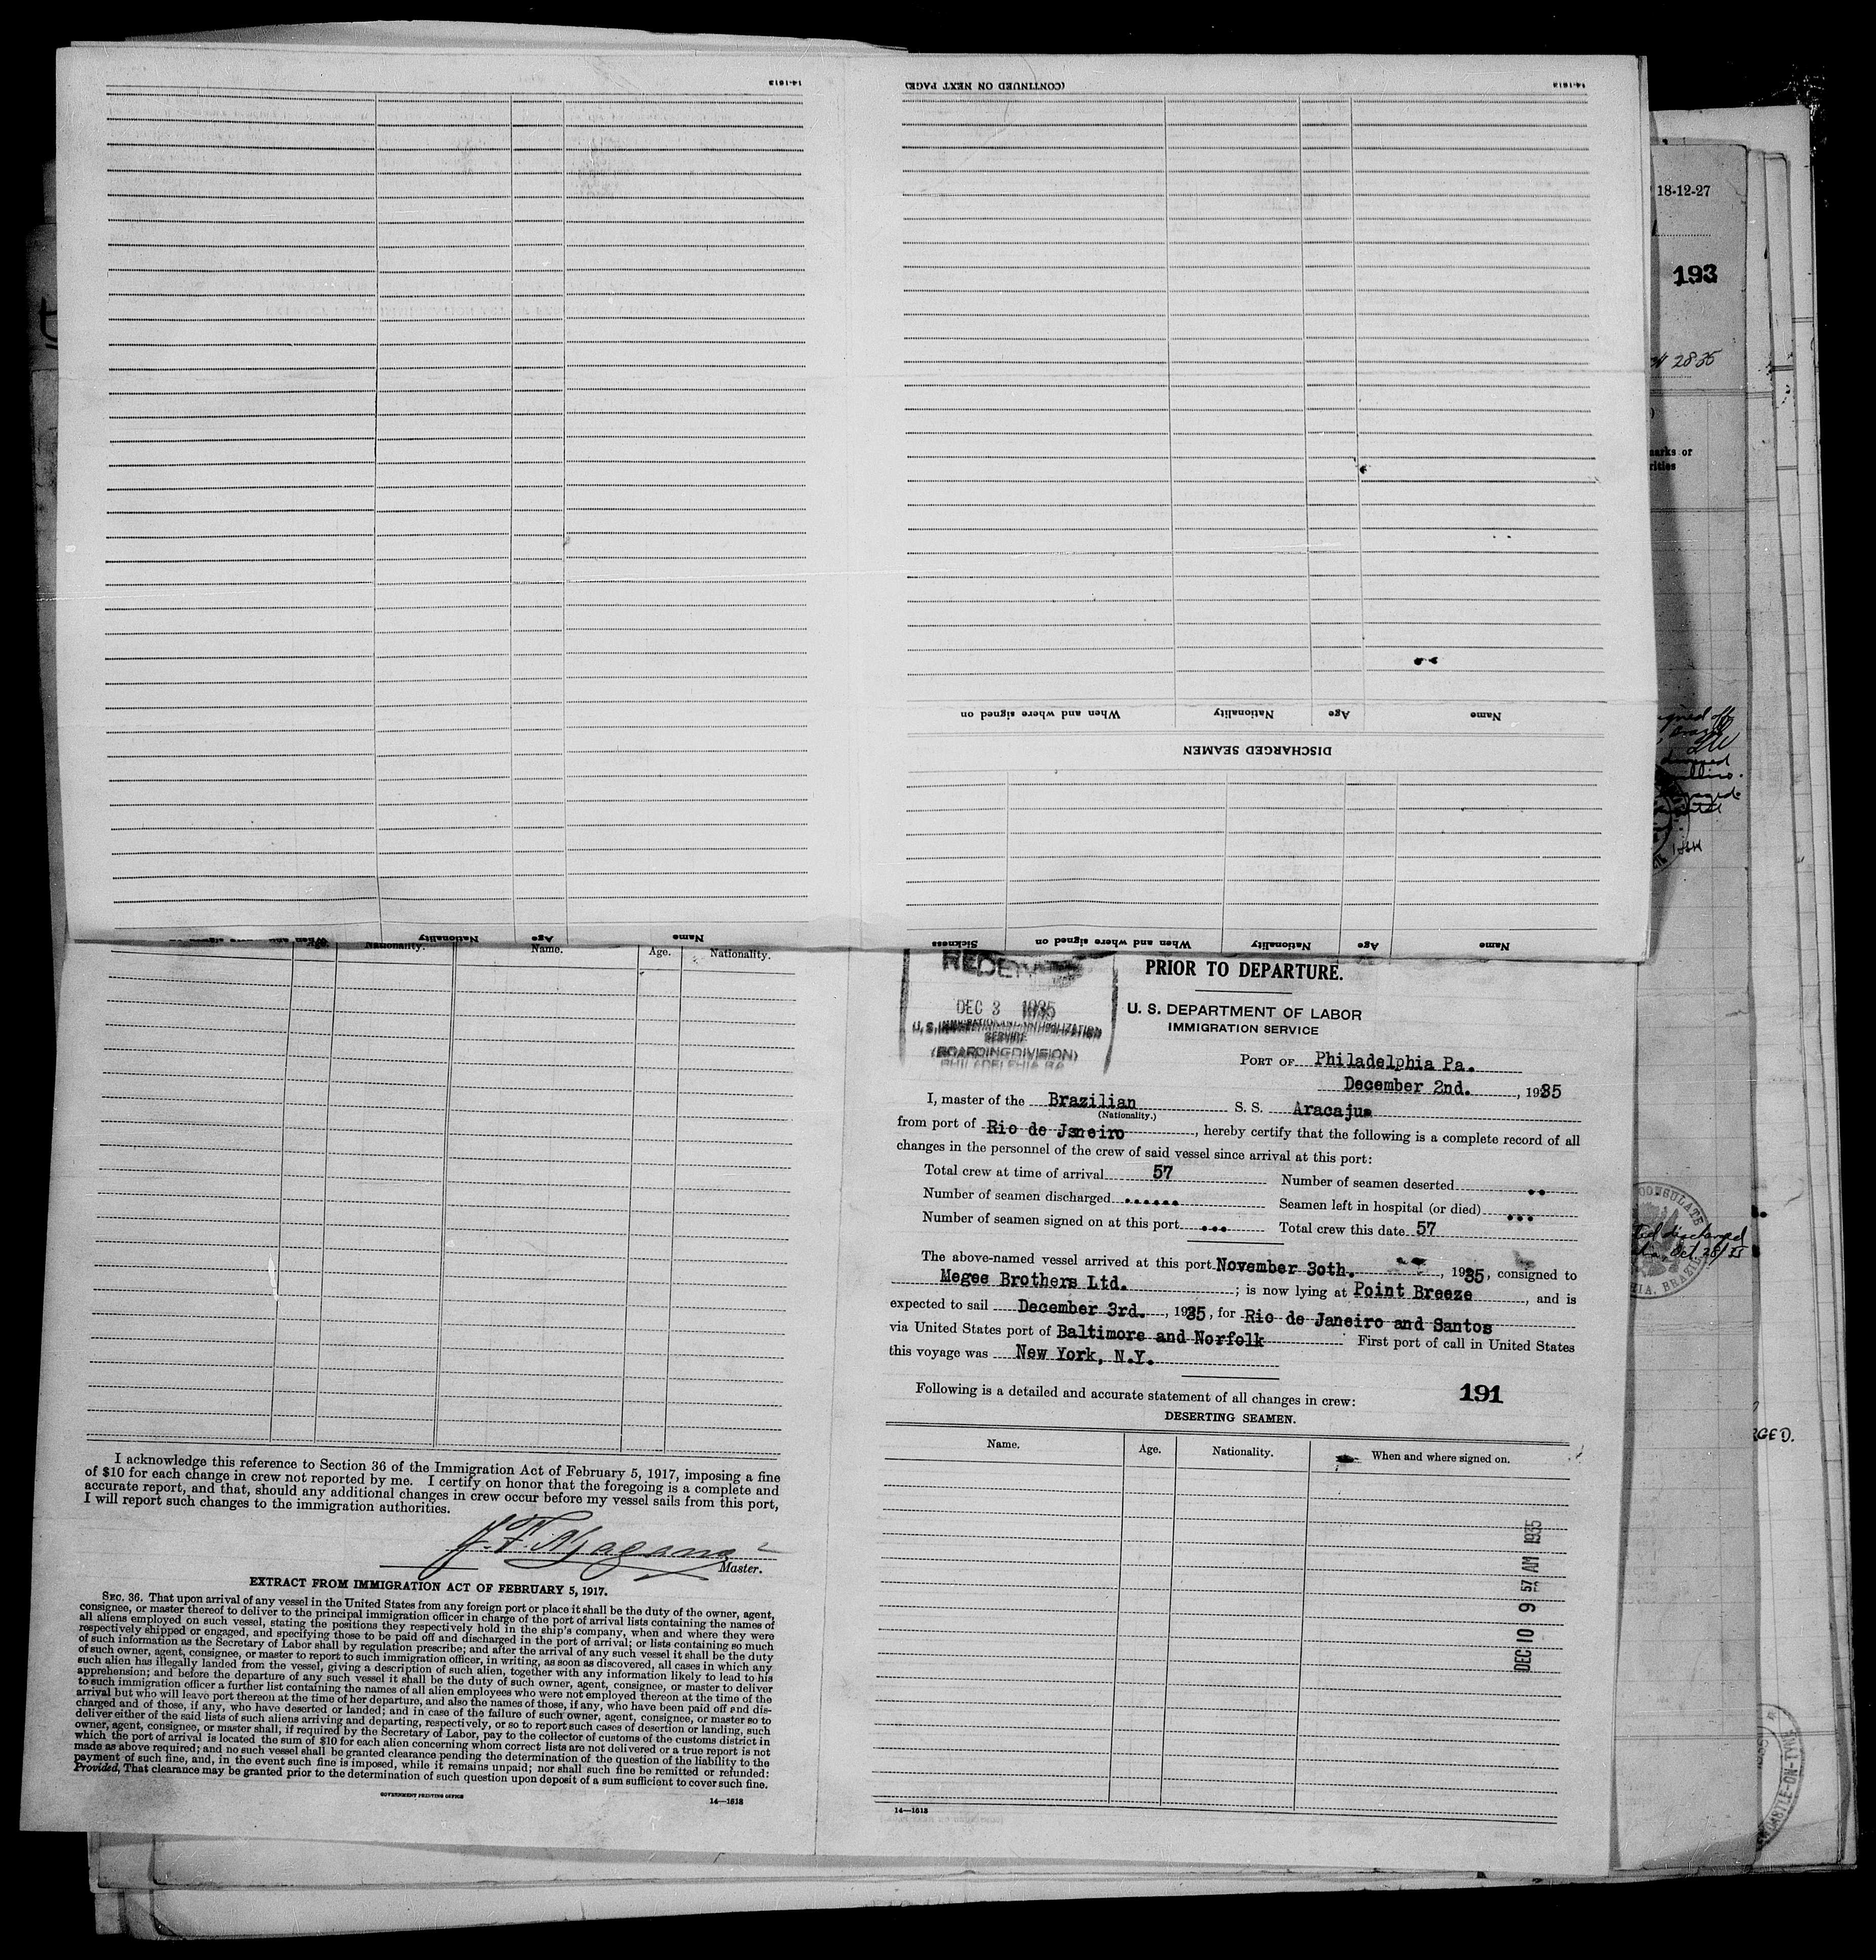 14-1613
(CONTINUED ON NEXT PAGE)
14-1613
When and where signed on
Nationality
Age
Name
DISCHARGED SEAMEN
Sickness
When and where signed on
Nationality
Age
Name
When and where signed on
Nationality
Age
Name
Age.
Nationality.
Name.
Age.
Nationality.
I acknowledge this reference to Section 36 of the Immigration Act of February 5, 1917, imposing a fine
of $10 for each change in crew not reported by me. I certify on honor that the foregoing is a complete and
accurate report, and that, should any additional changes in crew occur before my vessel sails from this port,
I will report such changes to the immigration authorities.
Master.
EXTRACT FROM IMMIGRATION ACT OF FEBRUARY 5, 1917.
SEC. 36. That upon arrival of any vessel in the United States from any foreign port or place it shall be the duty of the owner, agent,
consignee, or master thereof to deliver to the principal immigration officer in charge of the port of arrival lists containing the names of
all aliens employed on such vessel, stating the positions they respectively hold in the ship's company, when and where they were
respectively shipped or engaged, and specifying those to be paid off and discharged in the port of arrival; or lists containing so much
of such information as the Secretary of Labor shall by regulation prescribe; and after the arrival of any such vessel it shall be the duty
of such owner, agent, consignee, or master to report to such immigration officer, in writing, as soon as discovered, all cases in which any
such alien has illegally landed from the vessel, giving a description of such alien, together with any information likely to lead to his
apprehension; and before the departure of any such vessel it shall be the duty of such owner, agent, consignee, or master to deliver
to such immigration officer a further list containing the names of all alien employees who were not employed thereon at the time of the
arrival but who will leave port thereon at the time of her departure, and also the names of those, if any, who have been paid off and dis-
charged and of those, if any, who have deserted or landed; and in case of the failure of such owner, agent, consignee, or master so to
deliver either of the said lists of such aliens arriving and departing, respectively, or so to report such cases of desertion or landing, such
owner, agent, consignee, or master shall, if required by the Secretary of Labor, pay to the collector of customs of the customs district in
which the port of arrival is located the sum of $10 for each alien concerning whom correct lists are not delivered or a true report is not
made as above required; and no such vessel shall be granted clearance pending the determination of the question of the liability to the
payment of such fine, and, in the event such fine is imposed, while it remains unpaid; nor shall such fine be remitted or refunded:
Provided, That clearance may be granted prior to the determination of such question upon deposit of a sum sufficient to cover such fine.
GOVERNMENT PRINTING OFFICE
14—1613
DEC 3 1935
U. S. IMMIGRATION
SERVICE
(BOARDING DIVISION)
PHILADELPHIA PA
PRIOR TO DEPARTURE.
U. S. DEPARTMENT OF LABOR
IMMIGRATION SERVICE
PORT OF Philadelphia Pa.
December 2nd., 1935
I, master of the Brazilian S. S. Aracaju
(Nationality.)
from port of Rio de Janeiro, hereby certify that the following is a complete record of all
changes in the personnel of the crew of said vessel since arrival at this port:
Total crew at time of arrival 57 Number of seamen deserted ..
Number of seamen discharged ...... Seamen left in hospital (or died) ...
Number of seamen signed on at this port ... Total crew this date 57
The above-named vessel arrived at this port November 30th., 1935, consigned to
Megee Brothers Ltd.; is now lying at Point Breeze, and is
expected to sail December 3rd., 1935, for Rio de Janeiro and Santos
via United States port of Baltimore and Norfolk First port of call in United States
this voyage was New York, N.Y.
Following is a detailed and accurate statement of all changes in crew: 191
DESERTING SEAMEN.
Name.
Age.
Nationality.
When and where signed on.
DEC 10 9 57 AM 1935
14—1613
18-12-27
193
28 35